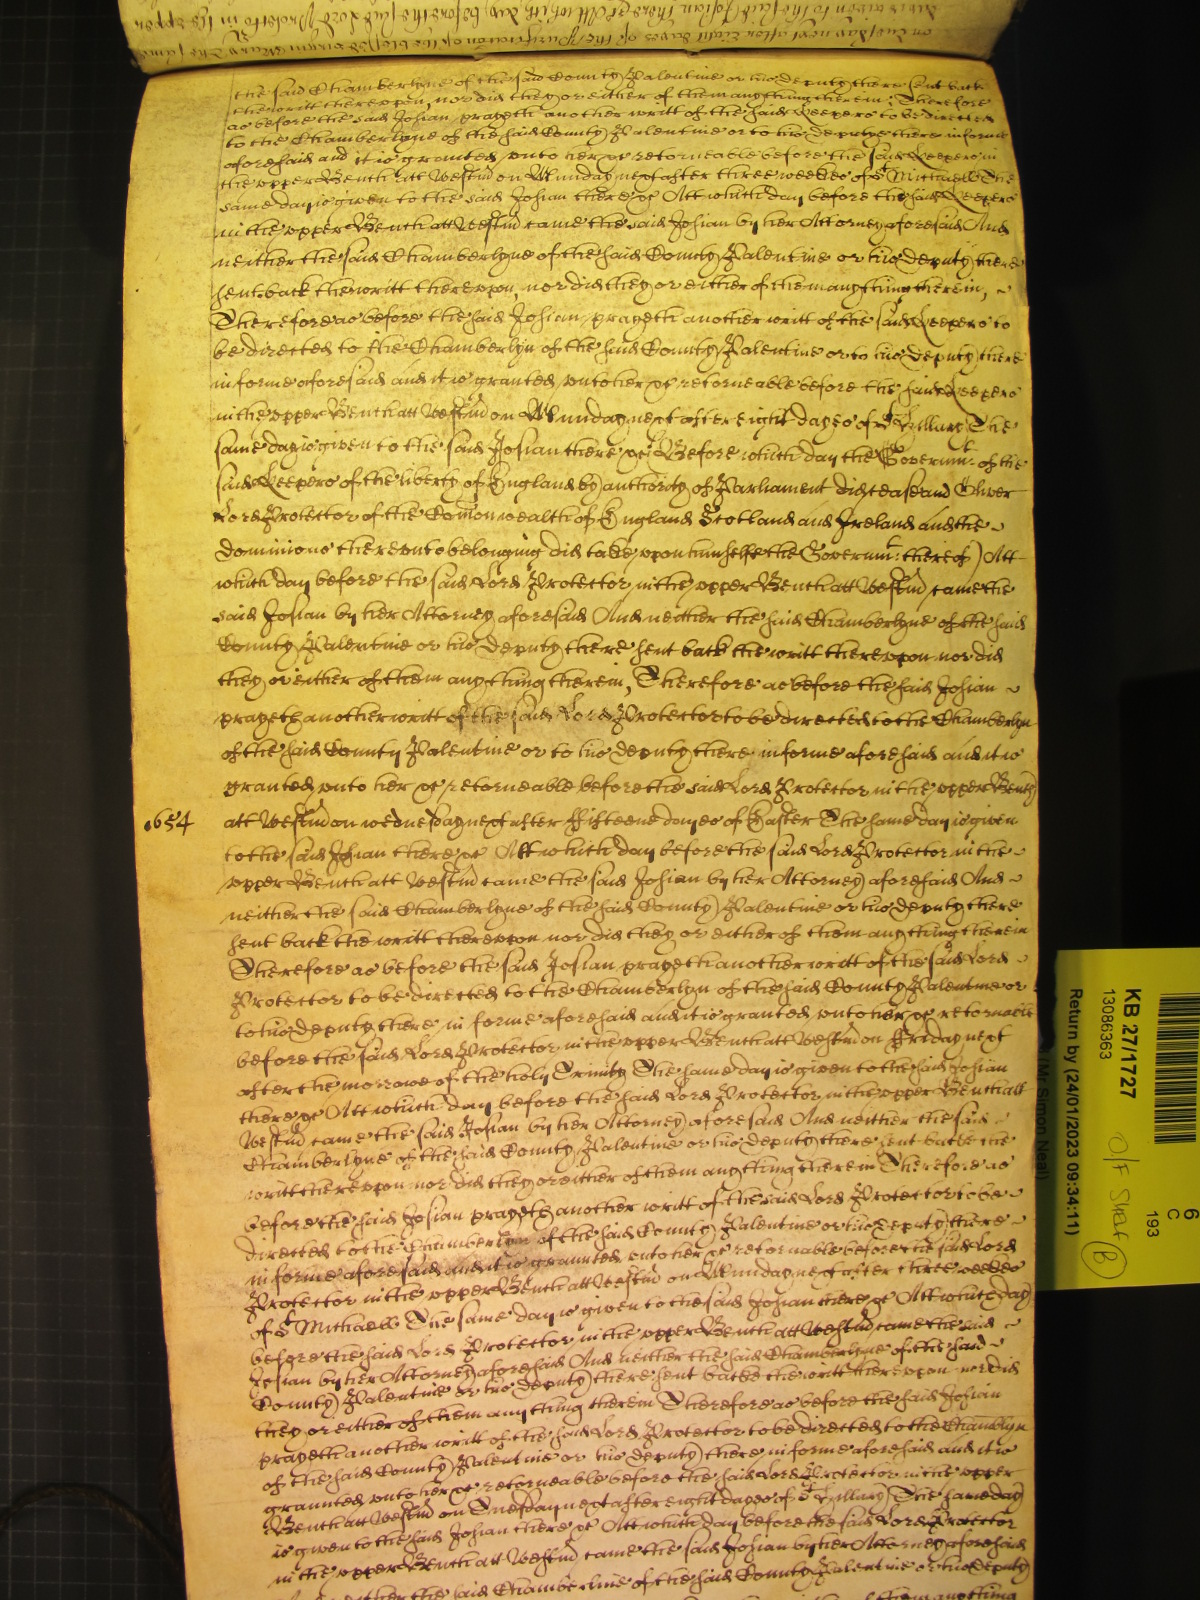 the said Chamberlyne of the said County Palentine or his deputy there sent back
the writt thereupon, nor did they or either of them any thing therein, Therefore
as before the said Josian prayeth another writt of the said Keepers to be directed
to the Chamberlyne of the said County Palentine or to his deputye there in forme
aforesaid and it is granted unto her &c retorneable before the said Keepers in
the upper Bench att Westm on Munday next after three weekes of St Michaell The
same day is given to the said Josian there &c Att which day before the said Keepers
in the upper Bench att Westm came the said Josian by her Attorney aforesaid And
neither the said Chamberlyne of the said County Palentine or his deputy there
sent back the writt thereupon, nor did they or either of them any thing therein,
Therefore as before the said Josian prayeth another writt of the said Keepers to
be directed to the Chamberlyn of the said County Palentine or to his deputy there
in forme aforesaid and it is granted unto her &c retorneable before the said Keepers
in the upper Bench att Westm on Munday next after eight dayes of St Hillary The
same day is given to the said Josian there &c Before which day the Governmt of the
said Keepers of the liberty of England by authority of Parliament did cease and Oliver
Lord Protector of the Comonwealth of England Scotland and Ireland and the
dominions thereunto belonging did take upon himselfe the Governmt thereof Att
which day before the said Lord Protector in the upper Bench att Westm came the
said Josian by her Attorney aforesaid And neither the said Chamberlyne of the said
County Palentine or his Deputy there sent back the writt thereupon nor did
they or either of them any thing therein, Therefore as before the said Josian
prayeth another writt of the said Lord Protector to be directed to the Chamberlyn
of the said County Palentine or to his deputy there in forme aforesaid and it is
granted unto her &c retorneable before the said Lord Protector in the upper Bench
1654
att Westm on wednesday next after Fifteene dayes of Easter The same day is given
to the said Josian there &c Att which day before the said Lord Protector in the
upper Bench att Westm came the said Josian by her Attorney aforesaid And
neither the said Chamberlyne of the said County Palentine or his deputy there
sent back the writt thereupon nor did they or either of them any thing therein
Therefore as before the said Josian prayeth another writt of the said Lord
Protector to be directed to the Chamberlyn of the said County Palentine or
to his deputy there in forme aforesaid and it is granted unto her &c retorneable
before the said Lord Protector in the upper Bench att Westm on Friday next
after the morrowe of the holy Trinity The same day is given to the said Josian
there &c Att which day before the said Lord Protector in the upper Bench att
Westm came the said Josian by her Attorney aforesaid And neither the said
Chamberlyne of the said County Palentine or his deputy there sent backe the
writt thereupon nor did they or either of them any thing therein Therefore as
before the said Josian prayeth another writt of the said Lord Protector to be
directed to the Chamberlyn of the said County Palentine or his Deputy there
in forme aforesaid and it is graunted unto her &c retornable before the said Lord
Protector in the upper Bench att Westm on Munday next after three weekes
of St Michaell The same day is given to the said Josian there &c Att which day
before the said Lord Protector in the upper Bench att Westm came the said
Josian by her Attorney aforesaid And neither the said Chamberlyne of the said
County Palentine or his deputy there sent backe the writt thereupon nor did
they or either of them any thing therein Therefore as before the said Josian
prayeth another writt of the said Lord Protector to be directed to the Chamblyn
of the said County Palentine or his deputy there in forme aforesaid and it is
graunted unto her &c retorneable before the said Lord Protector in the upper
Bench att Westm on Tuesday next after eight dayes of St Hillary The same day
is given to the said Josian there &c Att which day before the said Lord Protector
in the upper Bench att Westm came the said Josian by her Attorney aforesaid
neither the said Chamberline of the said County Palentine or his Deputy
KB 27/1727
13086363
Return by (24/01/2023 09:34:11)
(Mr Simon Neal)
O/F Shelf
B
6
C
193